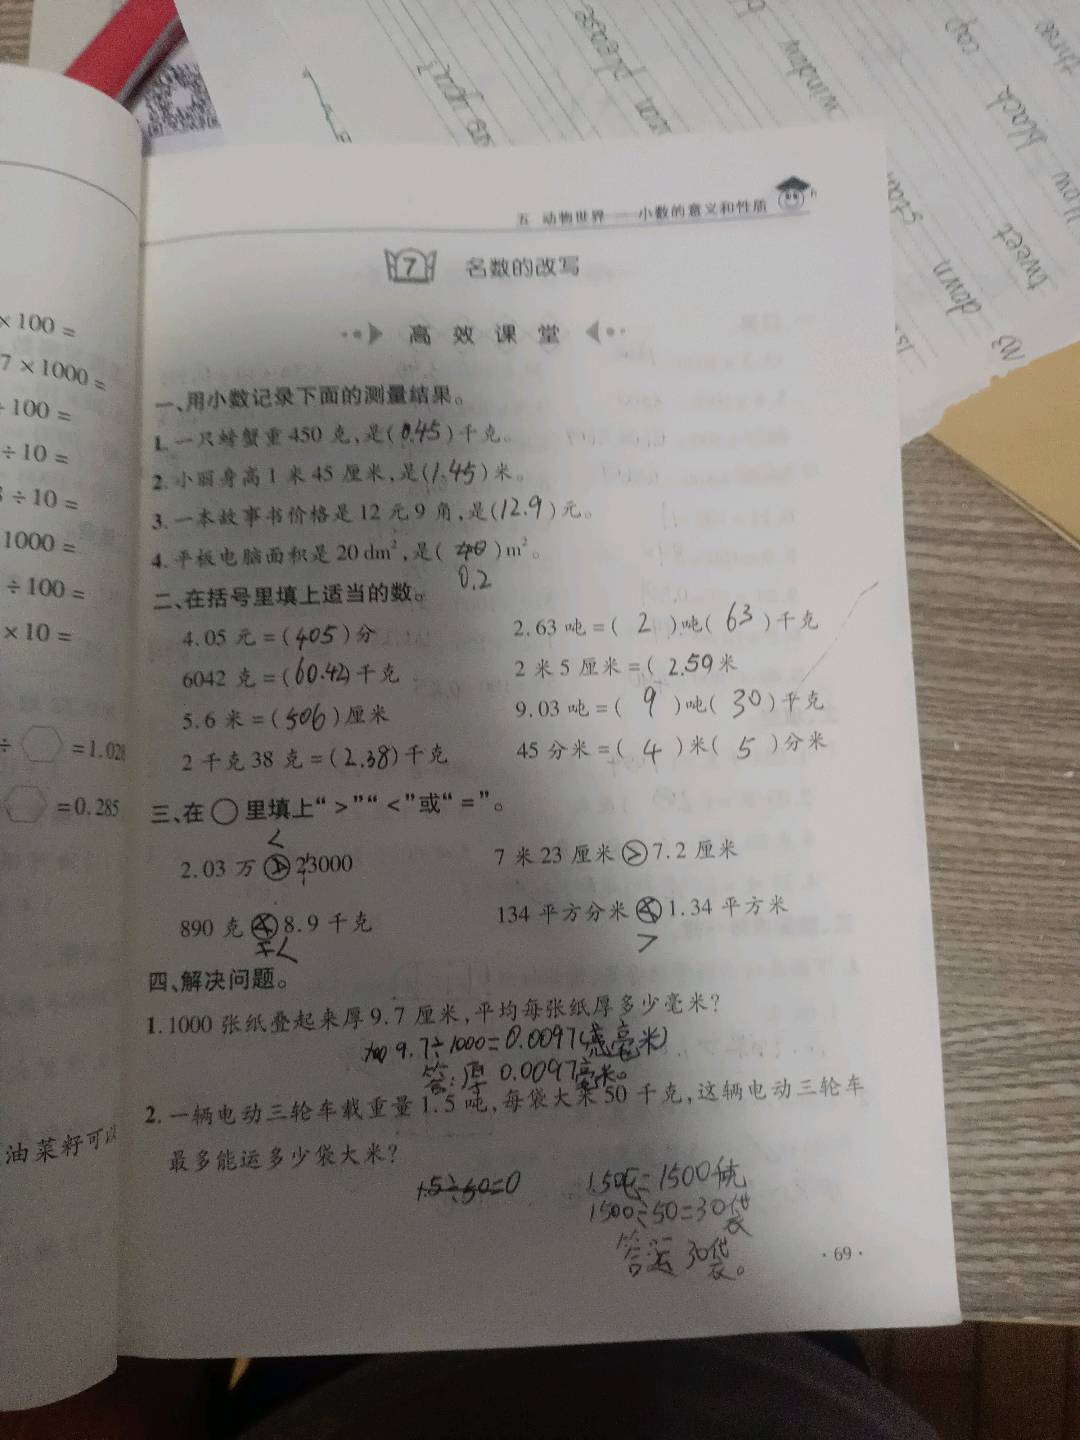 three
cap
black
window
please
How
tweet
down
五 动物世界——小数的意义和性质
7 名数的改写
高效课堂
×100=
7×1000=
÷100=
÷10=
÷10=
1000=
÷100=
×10=
÷ =1.028
=0.285
油菜籽可以
一、用小数记录下面的测量结果。
1.一只螃蟹重450克,是(0.45)千克。
2.小丽身高1米45厘米,是(1.45)米。
3.一本故事书价格是12元9角,是(12.9)元。
4.平板电脑面积是20dm²,是( )m²。
0.2
二、在括号里填上适当的数。
4.05元=(405)分 2.63吨=( 2 )吨( 63 )千克
6042克=(60.42)千克 2米5厘米=( 2.59米
5.6米=(506)厘米 9.03吨=( 9 )吨( 30 )千克
2千克38克=(2.38)千克 45分米=( 4 )米( 5 )分米
三、在○里填上“>”“<”或“=”。
<
2.03万 23000 7米23厘米>7.2厘米
890克 8.9千克 134平方分米 1.34平方米
< >
四、解决问题。
1.1000张纸叠起来厚9.7厘米,平均每张纸厚多少毫米?
9.7÷1000=0.0097(毫米)
答:厚 0.0097毫米。
2.一辆电动三轮车载重量1.5吨,每袋大米50千克,这辆电动三轮车
最多能运多少袋大米?
1.5÷50=0 1.5吨=1500千克
1500÷50=30袋
答:运30袋。
·69·